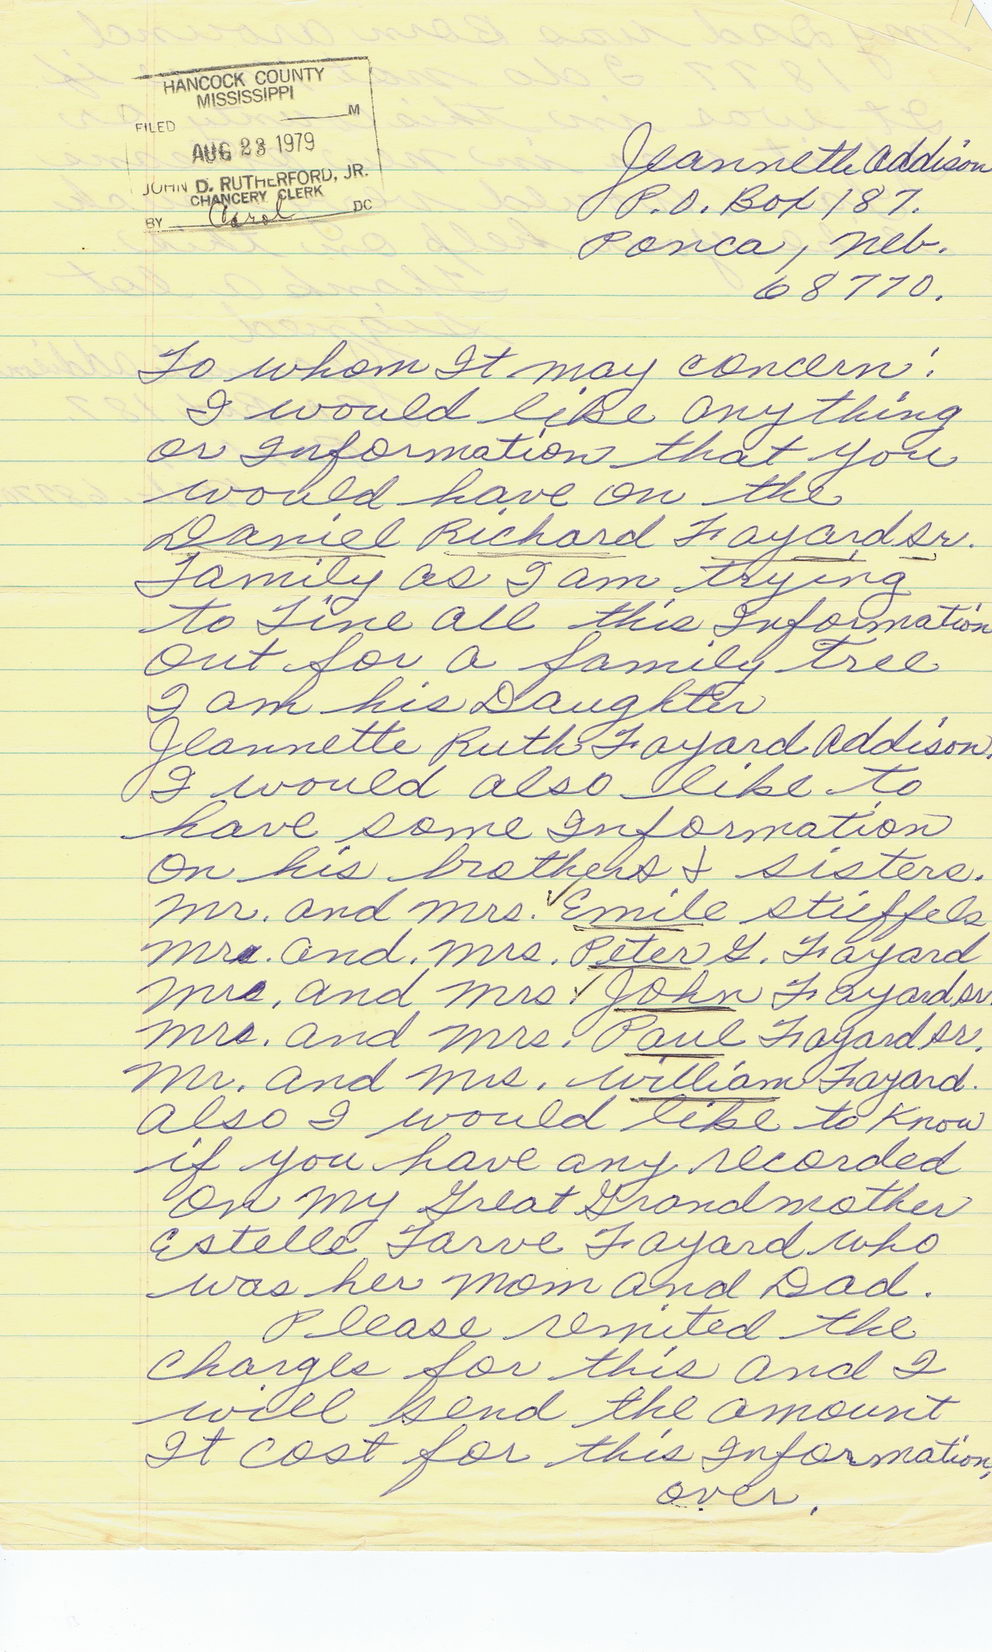 HANCOCK COUNTY
MISSISSIPPI
FILED M
AUG 23 1979
JOHN D. RUTHERFORD, JR.
CHANCERY CLERK
BY Carol DC
Jeannette Addison
P.O. Box 187.
Ponca, Neb.
68770.
To whom It may concern:
I would like anything
or Information that you
would have on the
Daniel Richard Fayard sr.
Family as I am trying
to Line all this Information
out for a family Tree
I am his Daughter
Jeannette Ruth Fayard Addison.
I would also like to
have some Information
on his brothers & sisters.
Mr. and Mrs. Emile stieffels
Mr. and. Mrs. Peter G. Fayard
Mr. and Mrs. John Fayard sr.
Mr. and Mrs. Paul Fayard sr.
Mr. and Mrs. William Fayard.
also I would like to know
if you have any recorded
on my Great Grandmother
Estelle Farve Fayard who
was her Mom and Dad.
Please remited the
charges for this and I
will send the amount
It cost for this Information,
over.